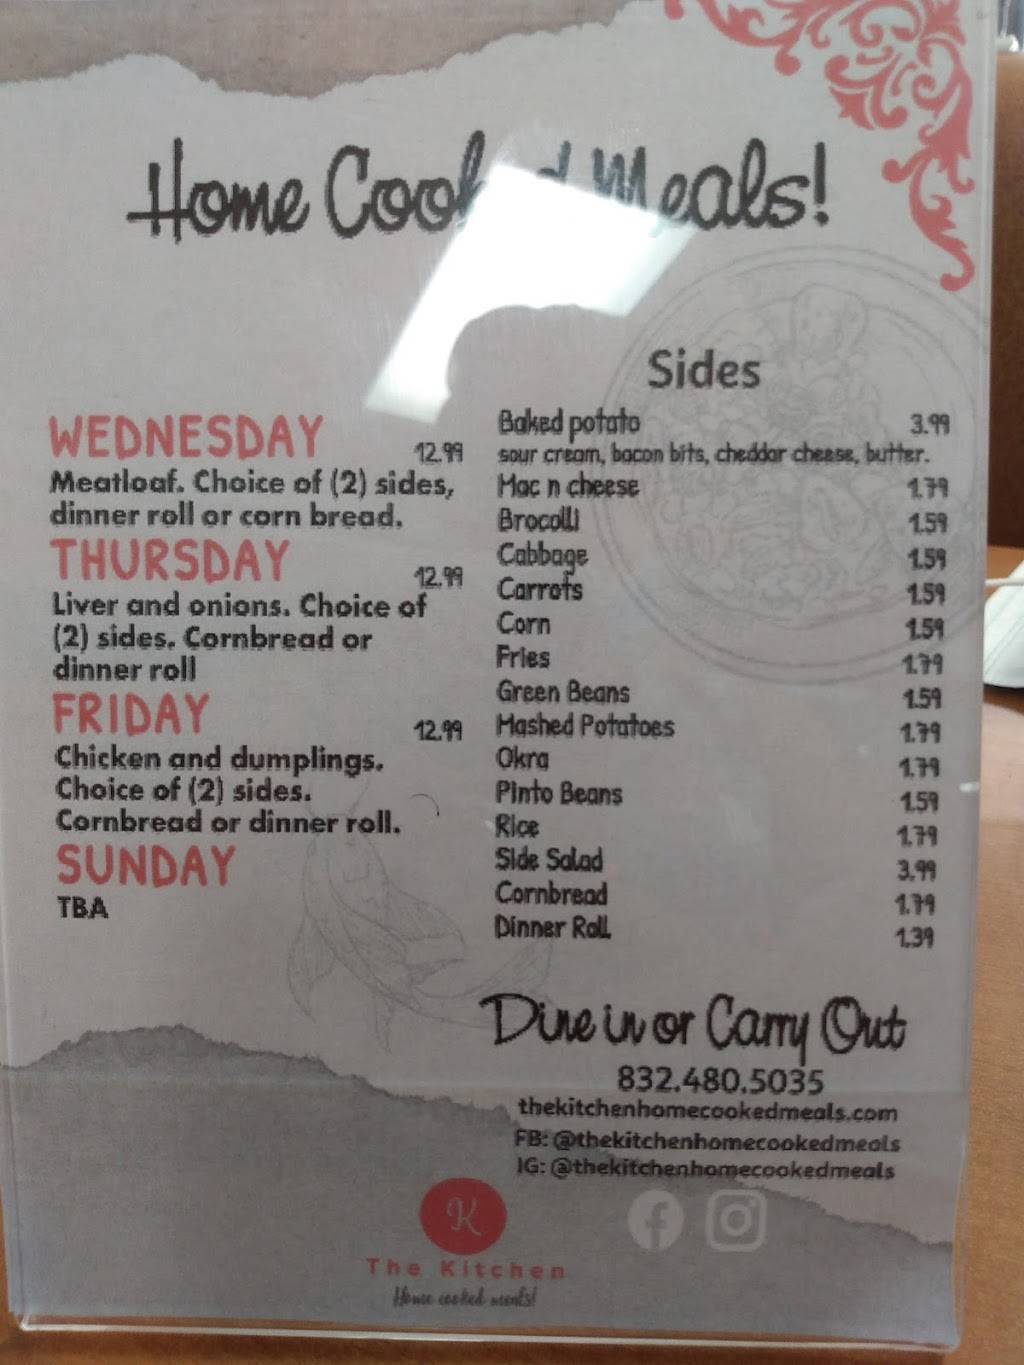 Home Cooked Meals!
WEDNESDAY 12.99
Meatloaf. Choice of (2) sides,
dinner roll or corn bread.
THURSDAY 12.99
Liver and onions. Choice of
(2) sides. Cornbread or
dinner roll
FRIDAY 12.99
Chicken and dumplings.
Choice of (2) sides.
Cornbread or dinner roll.
SUNDAY
TBA
Sides
Baked potato 3.99
sour cream, bacon bits, cheddar cheese, butter.
Mac n cheese 1.79
Brocolli 1.59
Cabbage 1.59
Carrots 1.59
Corn 1.59
Fries 1.79
Green Beans 1.59
Mashed Potatoes 1.79
Okra 1.79
Pinto Beans 1.59
Rice 1.79
Side Salad 3.99
Cornbread 1.79
Dinner Roll 1.39
Dine in or Carry Out
832.480.5035
thekitchenhomecookedmeals.com
FB: @thekitchenhomecookedmeals
IG: @thekitchenhomecookedmeals
K
The Kitchen
Home cooked meals!